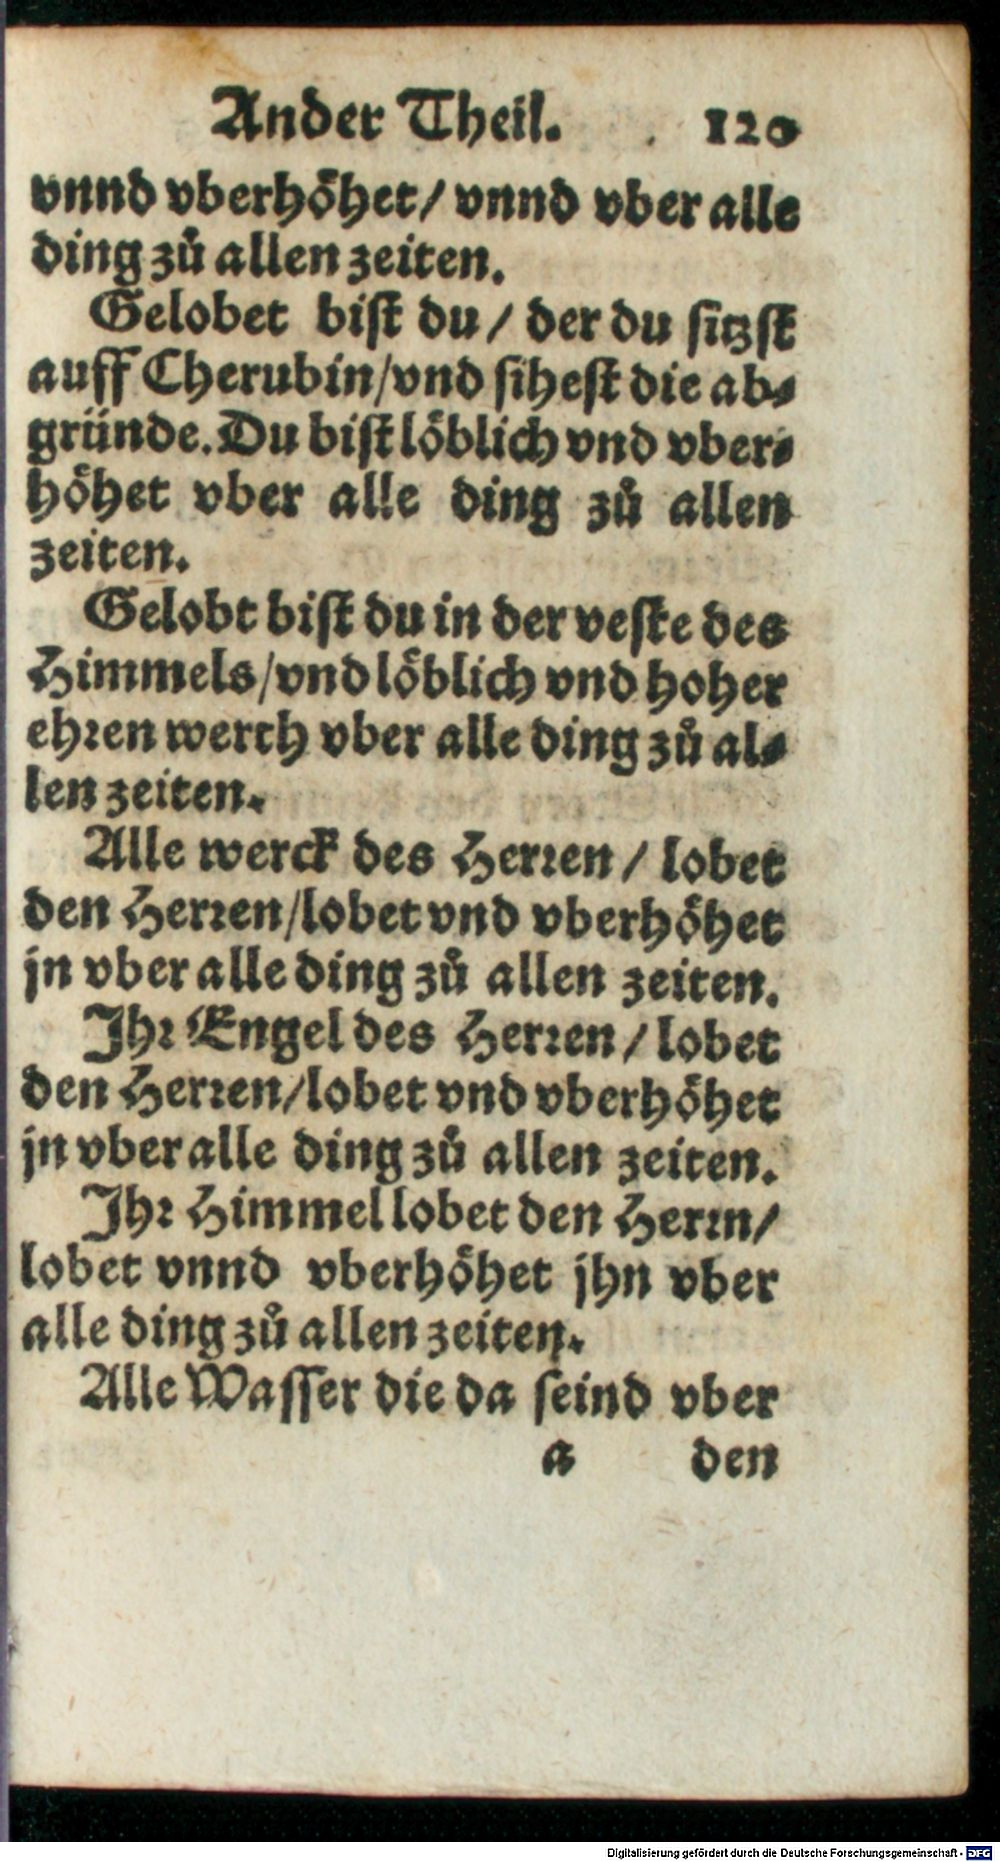 Ander Theil. 120
vnnd vberhöhet/ vnnd vber alle
ding zů allen zeiten.
Gelobet bist du/ der du sitzst
auff Cherubin/vnd sihest die ab-
gründe. Du bist löblich vnd vber-
höhet vber alle ding zů allen
zeiten.
Gelobt bist du in der veste des
Himmels/vnd löblich vnd hoher
ehren werth vber alle ding zů al-
len zeiten.
Alle werck des Herren/ lobet
den Herren/lobet vnd vberhöhet
jn vber alle ding zů allen zeiten.
Ihr Engel des Herren/ lobet
den Herren/lobet vnd vberhöhet
jn vber alle ding zů allen zeiten.
Ihr Himmel lobet den Herrn/
lobet vnnd vberhöhet jhn vber
alle ding zů allen zeiten.
Alle Wasser die da seind vber
a den
Digitalisierung gefördert durch die Deutsche Forschungsgemeinschaft - DFG